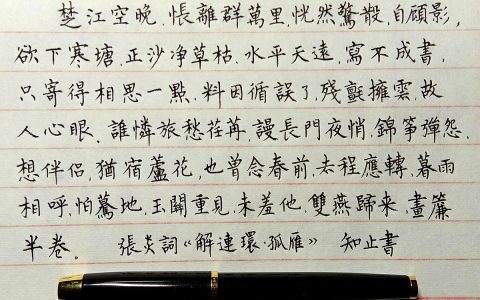 楚江空晚，悵離群萬里，恍然驚散，自顧影，
欲下寒塘，正沙淨草枯，水平天遠，寫不成書，
只寄得相思一點，料因循誤了，殘氈擁雪，故
人心眼。誰憐旅愁荏苒，謾長門夜悄，錦箏彈怨，
想伴侶，猶宿蘆花，也曾念春前，去程應轉，暮雨
相呼，怕驀地，玉關重見，未羞他，雙燕歸來，畫簾
半卷。 張炎詞《解連環·孤雁》 知止書